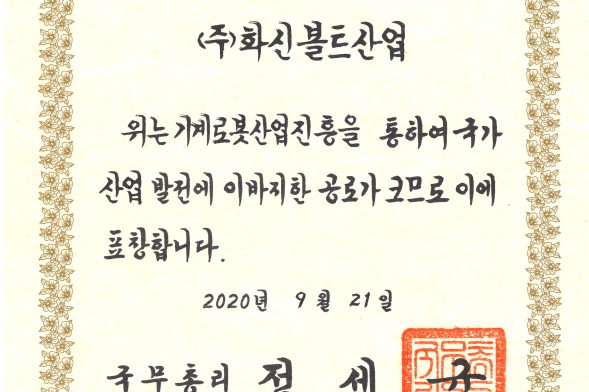 (주)화신볼트산업
위는 기계로봇산업진흥을 통하여 국가
산업 발전에 이바지한 공로가 크므로 이에
표창합니다.
2020년 9월 21일
국무총리 정 세